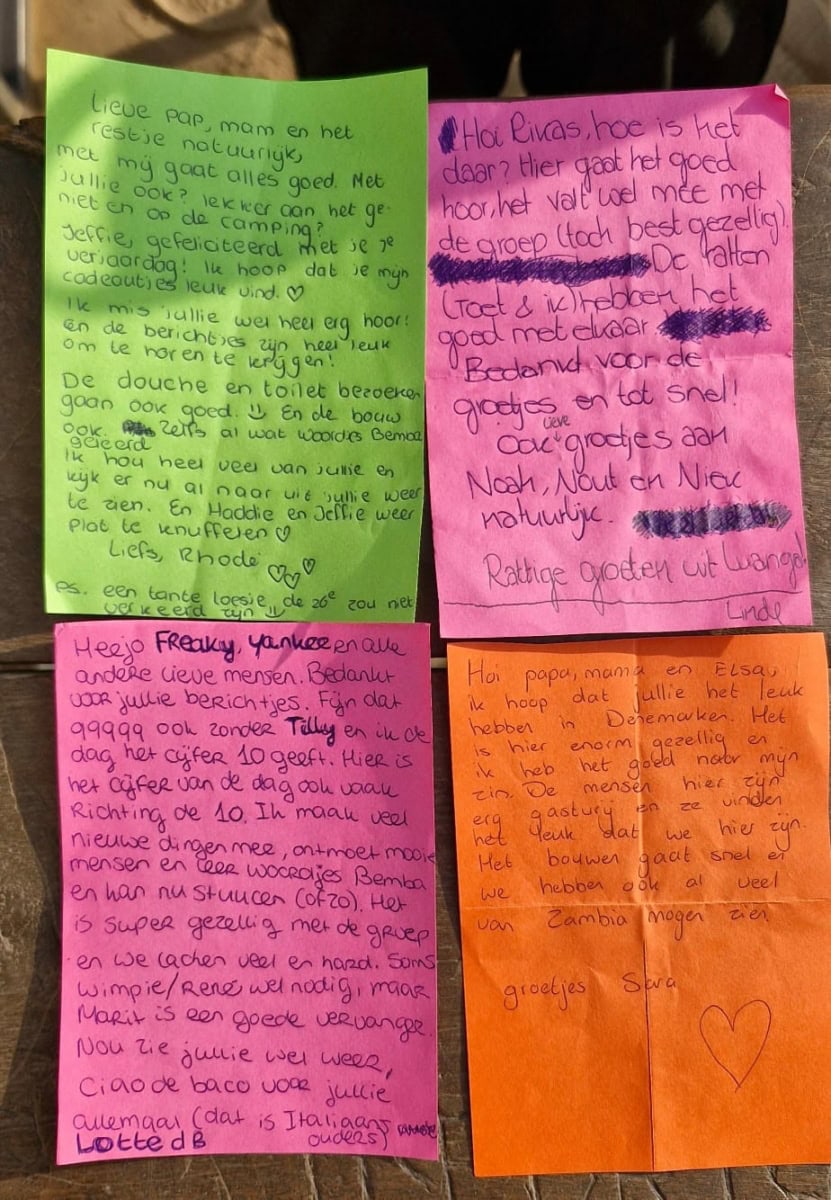 Lieve pap, mam en het
restje natuurlijk,
met mij gaat alles goed. Met
jullie ook? lekker aan het ge-
nieten op de camping?
Jeffie, gefeliciteerd met je 7e
verjaardag! Ik hoop dat je mijn
cadeautjes leuk vind. ♡
Ik mis jullie wel heel erg hoor!
en de berichtjes zijn heel leuk
om te horen te krijgen!
De douche en toilet bezoeken
gaan ook goed. En de bouw
ook. Zelfs al wat woordjes Bemba
geleerd
Ik hou heel veel van jullie en
kijk er nu al naar uit jullie weer
te zien. En Haddie en Jeffie weer
plat te knuffelen ♡
Liefs, Rhodé
ps. een tante loesie, de 26e zou net
verkeerd zijn
Hoi Rivas, hoe is het
daar? Hier gaat het goed
hoor, het valt wel mee met
de groep (toch best gezellig).
De ratten
(Toet & ik) hebben het
goed met elkaar.
Bedankt voor de
groetjes en tot snel!
Ook lieve groetjes aan
Noah, Nout en Niek
natuurlijk.
Rattige groeten uit Lwange!
Linde
Heejo FREAKY, Yankee en alle
andere lieve mensen. Bedankt
voor jullie berichtjes. Fijn dat
qqqqq ook zonder Tilly en ik de
dag het cijfer 10 geeft. Hier is
het cijfer van de dag ook vaak
Richting de 10. Ik maak veel
nieuwe dingen mee, ontmoet mooie
mensen en leer woordjes Bemba
en kan nu stuucen (of zo). Het
is super gezellig met de groep
en we lachen veel en hard. Soms
Wimpie/René wel nodig, maar
Marit is een goede vervanger.
Nou zie jullie wel weer,
Ciao de baco voor jullie
allemaal (dat is Italiaans
ouders)
Lotte dB
Hoi papa, mama en Elsa,
ik hoop dat jullie het leuk
hebben in Denemarken. Het
is hier enorm gezellig en
ik heb het goed naar mijn
zin. De mensen hier zijn
erg gastvrij en ze vinden
het leuk dat we hier zijn.
Het bouwen gaat snel en
we hebben ook al veel
van Zambia mogen zien.
groetjes Sara
♡